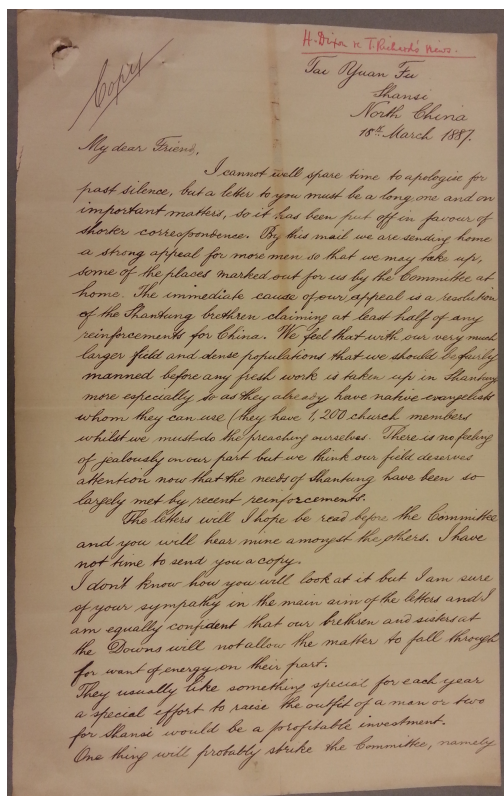 H. Dixon re T. Richard's views.
Copy
Tai Yuan Fu
Shansi
North China
18th March 1887.
My dear Friend,
I cannot well spare time to apologise for
past silence, but a letter to you must be a long one and on
important matters, so it has been put off in favour of
shorter correspondence. By this mail we are sending home
a strong appeal for more men so that we may take up,
some of the places marked out for us by the Committee at
home. The immediate cause of our appeal is a resolution
of the Shantung brethren claiming at least half of any
reinforcements for China. We feel that with our very much
larger field and dense populations that we should be fairly
manned before any fresh work is taken up in Shantung
more especially so as they already have native evangelists
whom they can use (they have 1,200 church members
whilst we must do the preaching ourselves. There is no feeling
of jealously on our part but we think our field deserves
attention now that the needs of Shantung have been so
largely met by recent reinforcements.
The letters will I hope be read before the Committee
and you will hear mine amongst the others. I have
not time to send you a copy.
I don't know how you will look at it but I am sure
of your sympathy in the main aim of the letters and I
am equally confident that our brethren and sisters at
the Downs will not allow the matter to fall through
for want of energy on their part.
They usually like something special for each year
a special effort to raise the outfit of a man or two
for Shansi would be a profitable investment.
One thing will probably strike the Committee, namely